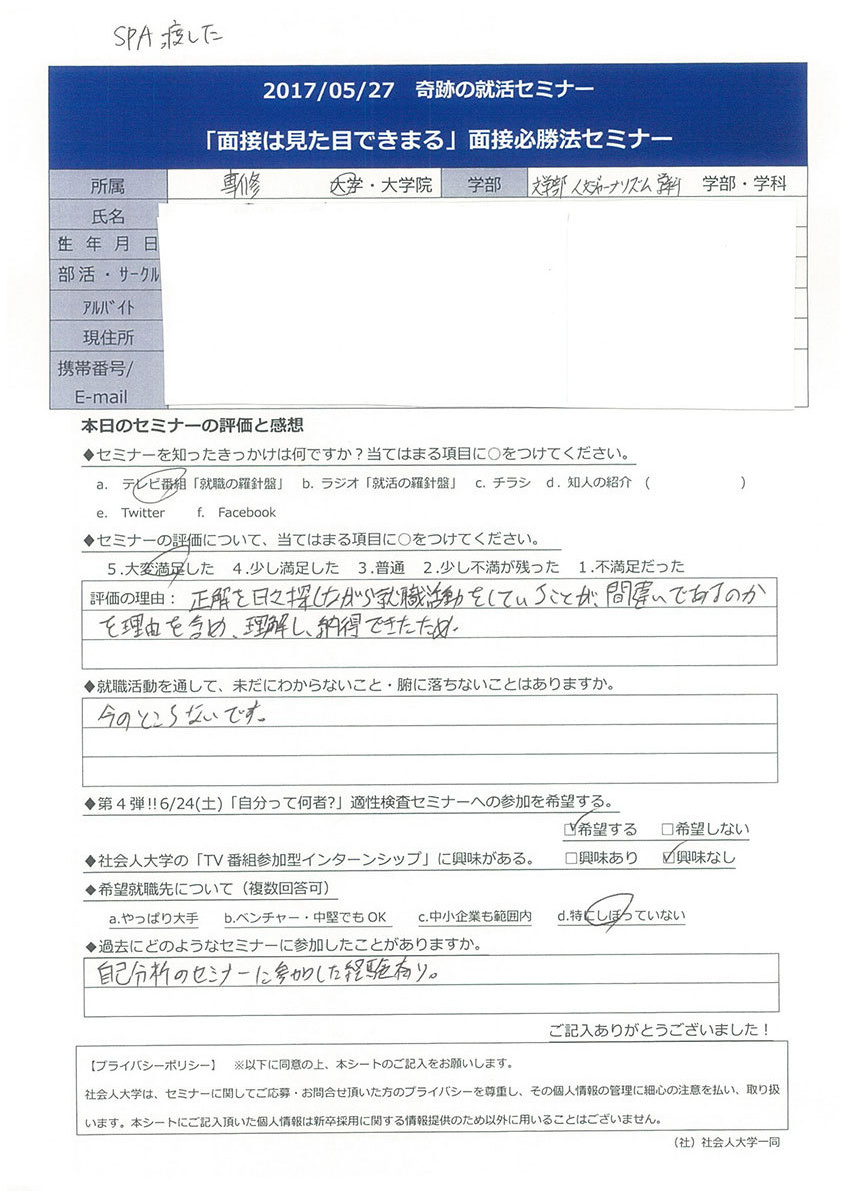 SPA 渡した
2017/05/27 奇跡の就活セミナー
「面接は見た目できまる」面接必勝法セミナー
所属 専修 大学・大学院 学部 文学部 人文ジャーナリズム学科 学部・学科
氏名
生年月日
部活・サークル
アルバイト
現住所
携帯番号/
E-mail
本日のセミナーの評価と感想
◆セミナーを知ったきっかけは何ですか？当てはまる項目に○をつけてください。
a. テレビ番組「就職の羅針盤」 b. ラジオ「就活の羅針盤」 c. チラシ d. 知人の紹介 ( )
e. Twitter f. Facebook
◆セミナーの評価について、当てはまる項目に○をつけてください。
5.大変満足した 4.少し満足した 3.普通 2.少し不満が残った 1.不満足だった
評価の理由： 正解を日々探しながら就職活動をしていることが、間違いであるのか
を理由を含め、理解し、納得できたため。
◆就職活動を通して、未だにわからないこと・腑に落ちないことはありますか。
今のところないです。
◆第４弾!!6/24(土)「自分って何者?」適性検査セミナーへの参加を希望する。
☑希望する □希望しない
◆社会人大学の「TV番組参加型インターンシップ」に興味がある。 □興味あり ☑興味なし
◆希望就職先について（複数回答可）
a.やっぱり大手 b.ベンチャー・中堅でもOK c.中小企業も範囲内 d.特にしぼっていない
◆過去にどのようなセミナーに参加したことがありますか。
自己分析のセミナーに参加した経験有り。
ご記入ありがとうございました！
【プライバシーポリシー】 ※以下に同意の上、本シートのご記入をお願いします。
社会人大学は、セミナーに関してご応募・お問合せ頂いた方のプライバシーを尊重し、その個人情報の管理に細心の注意を払い、取り扱
います。本シートにご記入頂いた個人情報は新卒採用に関する情報提供のため以外に用いることはございません。
（社）社会人大学一同